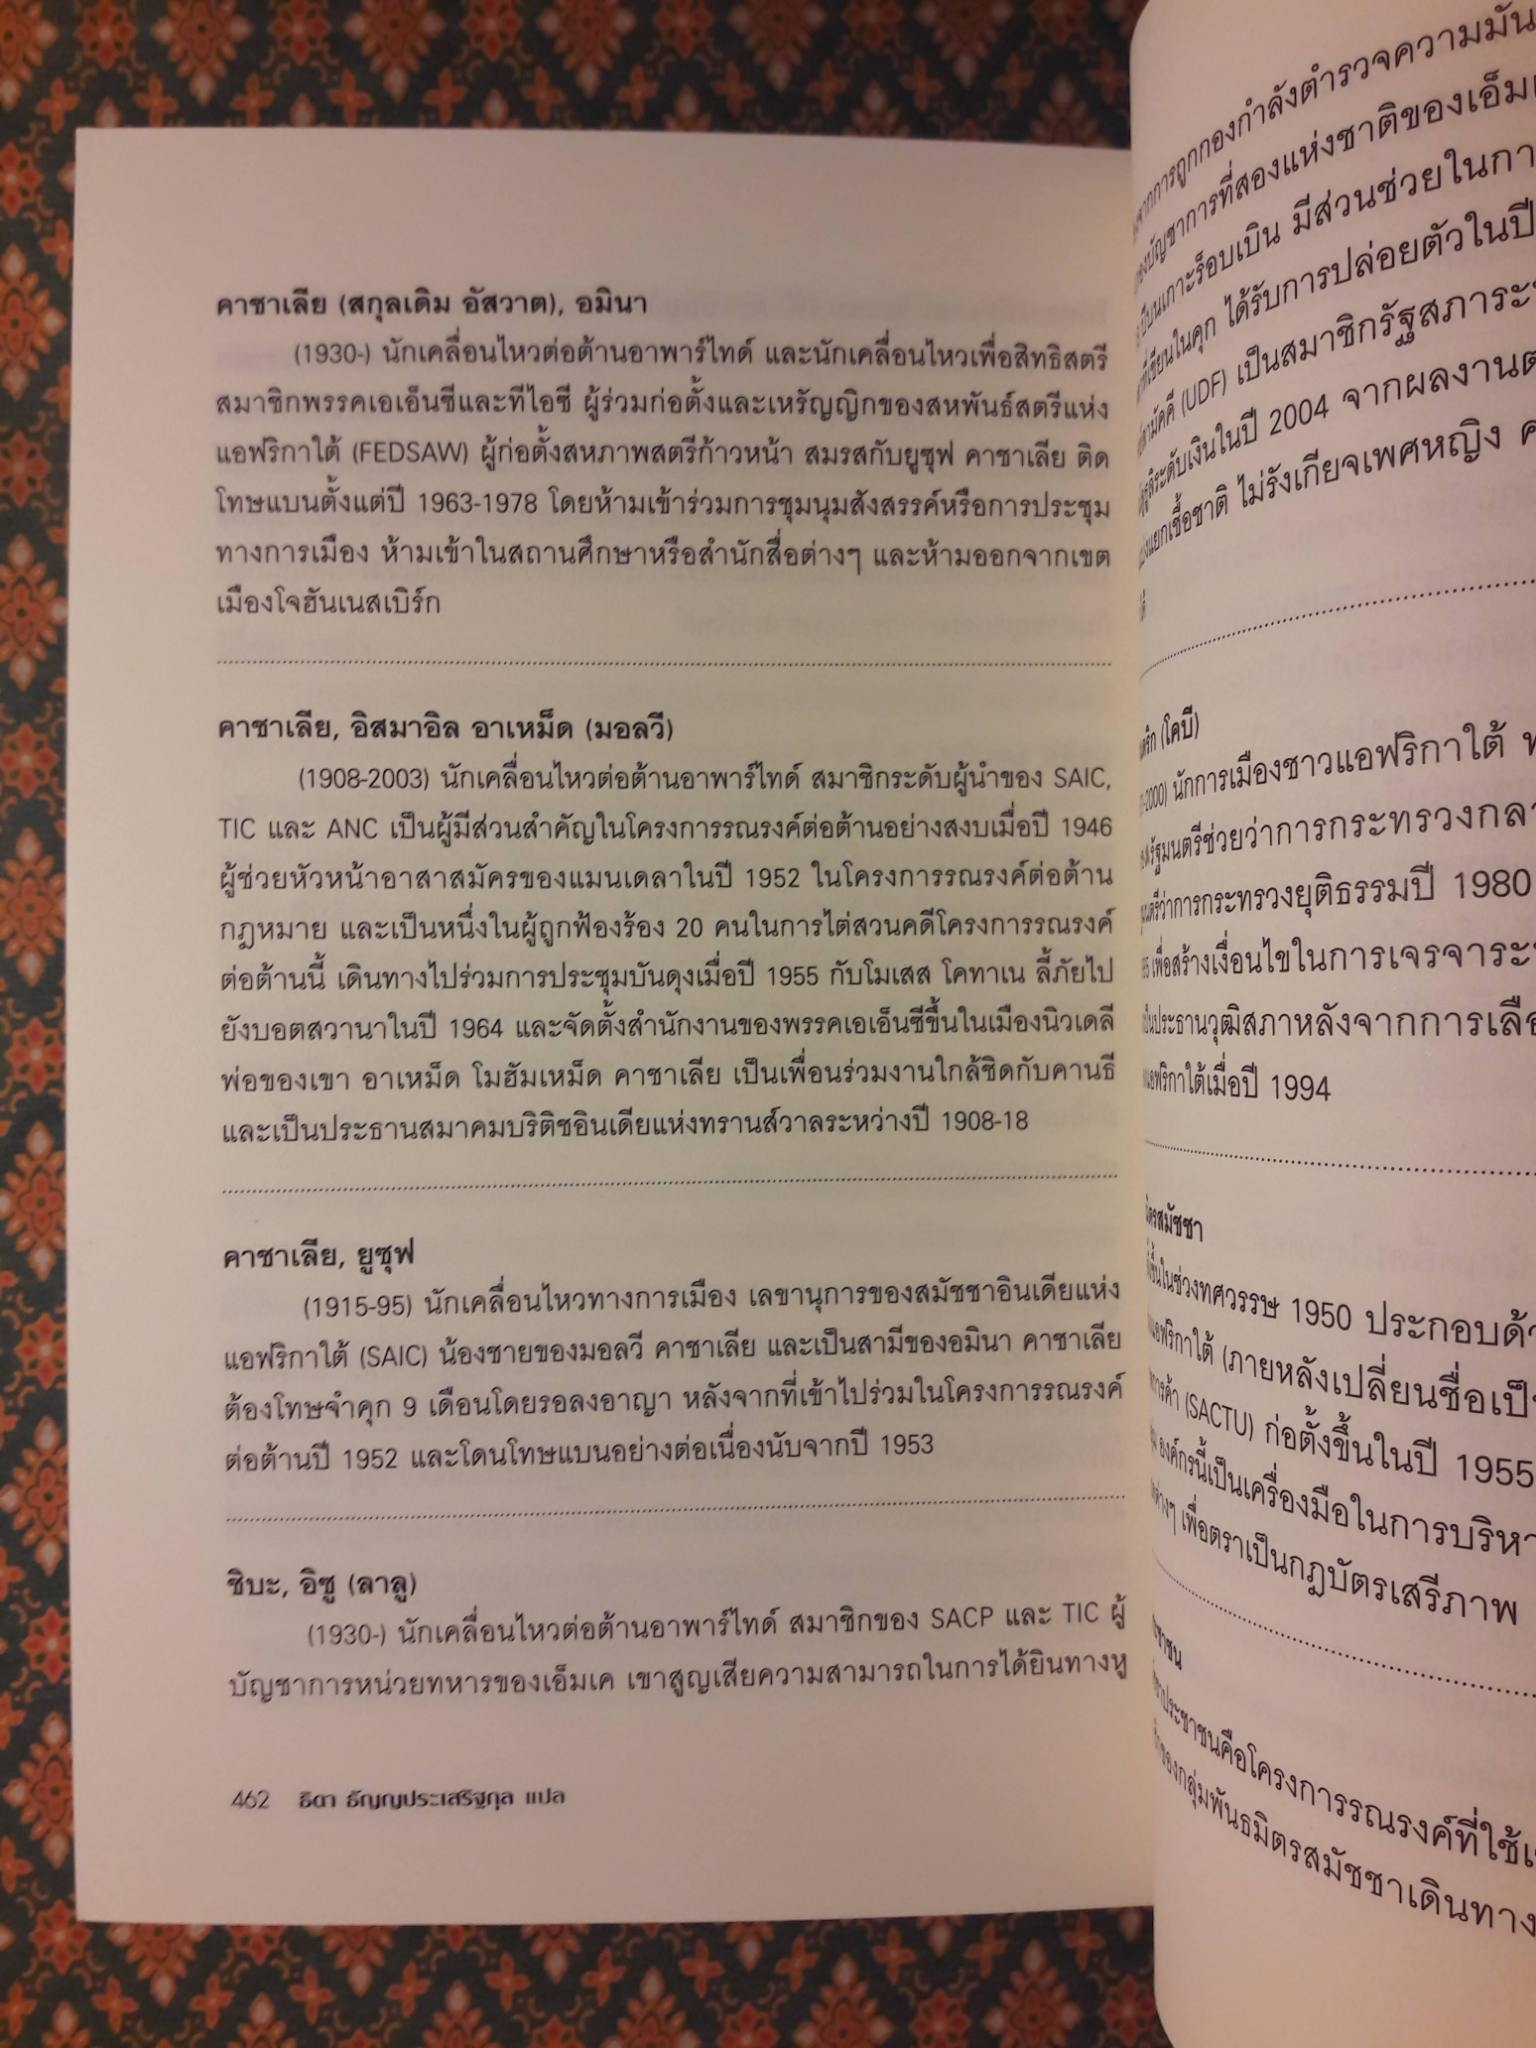 คาชาเลีย (สกุลเดิม อัสวาต), อมินา
(1930-) นักเคลื่อนไหวต่อต้านอาพาร์ไทด์ และนักเคลื่อนไหวเพื่อสิทธิสตรี
สมาชิกพรรคเอเอ็นซีและทีไอซี ผู้ร่วมก่อตั้งและเหรัญญิกของสหพันธ์สตรีแห่ง
แอฟริกาใต้ (FEDSAW) ผู้ก่อตั้งสหภาพสตรีก้าวหน้า สมรสกับยูซุฟ คาชาเลีย ติด
โทษแบนตั้งแต่ปี 1963-1978 โดยห้ามเข้าร่วมการชุมนุมสังสรรค์หรือการประชุม
ทางการเมือง ห้ามเข้าในสถานศึกษาหรือสำนักสื่อต่างๆ และห้ามออกจากเขต
เมืองโจฮันเนสเบิร์ก
คาชาเลีย, อิสมาอิล อาเหม็ด (มอลวี)
(1908-2003) นักเคลื่อนไหวต่อต้านอาพาร์ไทด์ สมาชิกระดับผู้นำของ SAIC,
TIC และ ANC เป็นผู้มีส่วนสำคัญในโครงการรณรงค์ต่อต้านอย่างสงบเมื่อปี 1946
ผู้ช่วยหัวหน้าอาสาสมัครของแมนเดลาในปี 1952 ในโครงการรณรงค์ต่อต้าน
กฎหมาย และเป็นหนึ่งในผู้ถูกฟ้องร้อง 20 คนในการไต่สวนคดีโครงการรณรงค์
ต่อต้านนี้ เดินทางไปร่วมการประชุมบันดุงเมื่อปี 1955 กับโมเสส โคทาเน ลี้ภัยไป
ยังบอตสวานาในปี 1964 และจัดตั้งสำนักงานของพรรคเอเอ็นซีขึ้นในเมืองนิวเดลี
พ่อของเขา อาเหม็ด โมฮัมเหม็ด คาชาเลีย เป็นเพื่อนร่วมงานใกล้ชิดกับคานธี
และเป็นประธานสมาคมบริติชอินเดียแห่งทรานส์วาลระหว่างปี 1908-18
คาชาเลีย, ยูซุฟ
(1915-95) นักเคลื่อนไหวทางการเมือง เลขานุการของสมัชชาอินเดียแห่ง
แอฟริกาใต้ (SAIC) น้องชายของมอลวี คาชาเลีย และเป็นสามีของอมินา คาชาเลีย
ต้องโทษจำคุก 9 เดือนโดยรอลงอาญา หลังจากที่เข้าไปร่วมในโครงการรณรงค์
ต่อต้านปี 1952 และโดนโทษแบนอย่างต่อเนื่องนับจากปี 1953
ชิบะ, อิซู (ลาลู)
(1930-) นักเคลื่อนไหวต่อต้านอาพาร์ไทด์ สมาชิกของ SACP และ TIC ผู้
บัญชาการหน่วยทหารของเอ็มเค เขาสูญเสียความสามารถในการได้ยินทางหู
462 ธิดา ธัญญประเสริฐกุล แปล
จากการถูกกองกำลังตำรวจความมั่น
บัญชาการที่สองแห่งชาติของเอ็ม
บนเกาะร็อบเบิน มีส่วนช่วยในกา
ที่เขียนในคุก ได้รับการปล่อยตัวในปี
(UDF) เป็นสมาชิกรัฐสภาระ
ระดับเงินในปี 2004 จากผลงานต
แยกเชื้อชาติ ไม่รังเกียจเพศหญิง
(โคบี)
2000) นักการเมืองชาวแอฟริกาใต้
รัฐมนตรีช่วยว่าการกระทรวงกลา
ว่าการกระทรวงยุติธรรมปี 1980
เพื่อสร้างเงื่อนไขในการเจรจาระ
เป็นประธานวุฒิสภาหลังจากการเลือ
แอฟริกาใต้เมื่อปี 1994
มิตรสมัชชา
ขึ้นในช่วงทศวรรษ 1950 ประกอบด้ว
แอฟริกาใต้ (ภายหลังเปลี่ยนชื่อเป็
การค้า (SACTU) ก่อตั้งขึ้นในปี 1955
องค์กรนี้เป็นเครื่องมือในการบริหา
ต่างๆ เพื่อตราเป็นกฎบัตรเสรีภาพ
ประชาชนคือโครงการรณรงค์ที่ใช้
ของกลุ่มพันธมิตรสมัชชาเดินทาง